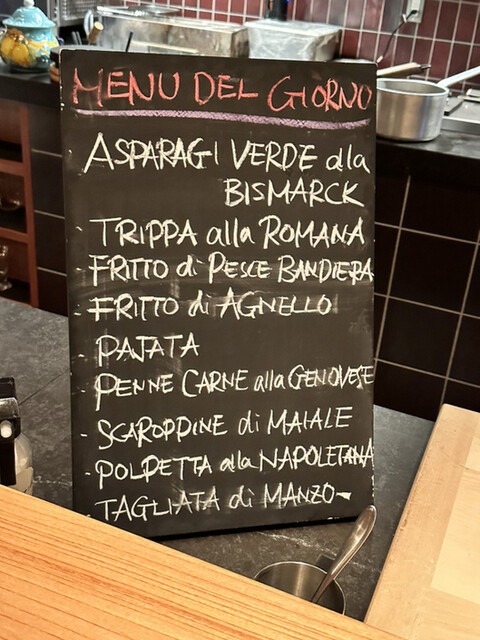 MENU DEL GIORNO
ASPARAGI VERDE alla
BISMARCK
- TRIPPA alla ROMANA
- FRITTO di PESCE BANDIERA
- FRITTO di AGNELLO
- PAJATA
- PENNE CARNE alla GENOVESE
- SCAROPPINE di MAIALE
- POLPETTA alla NAPOLETANA
- TAGLIATA di MANZO-